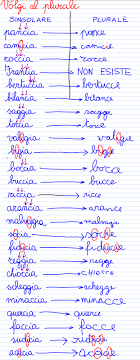 Volgi al plurale
SINGOLARE PLURALE
pancia → pance
camicia → camicie
roccia → rocce
Francia → NON ESISTE
bertuccia → bertucce
bilancia → bilance
spiaggia → spiagge
torcia → torce
valigia → valigie
ciliegia → ciliegie
boccia → bocce
buccia → bucce
riccia → ricce
arancia → arance
malvagia → malvagie
socia → socie
fiducia
reggia → regge
chioccia → chiocce
scheggia → schegge
minaccia → minacce
quercia → querce
faccia → facce
sudicia → sudicie
acacia → acacie